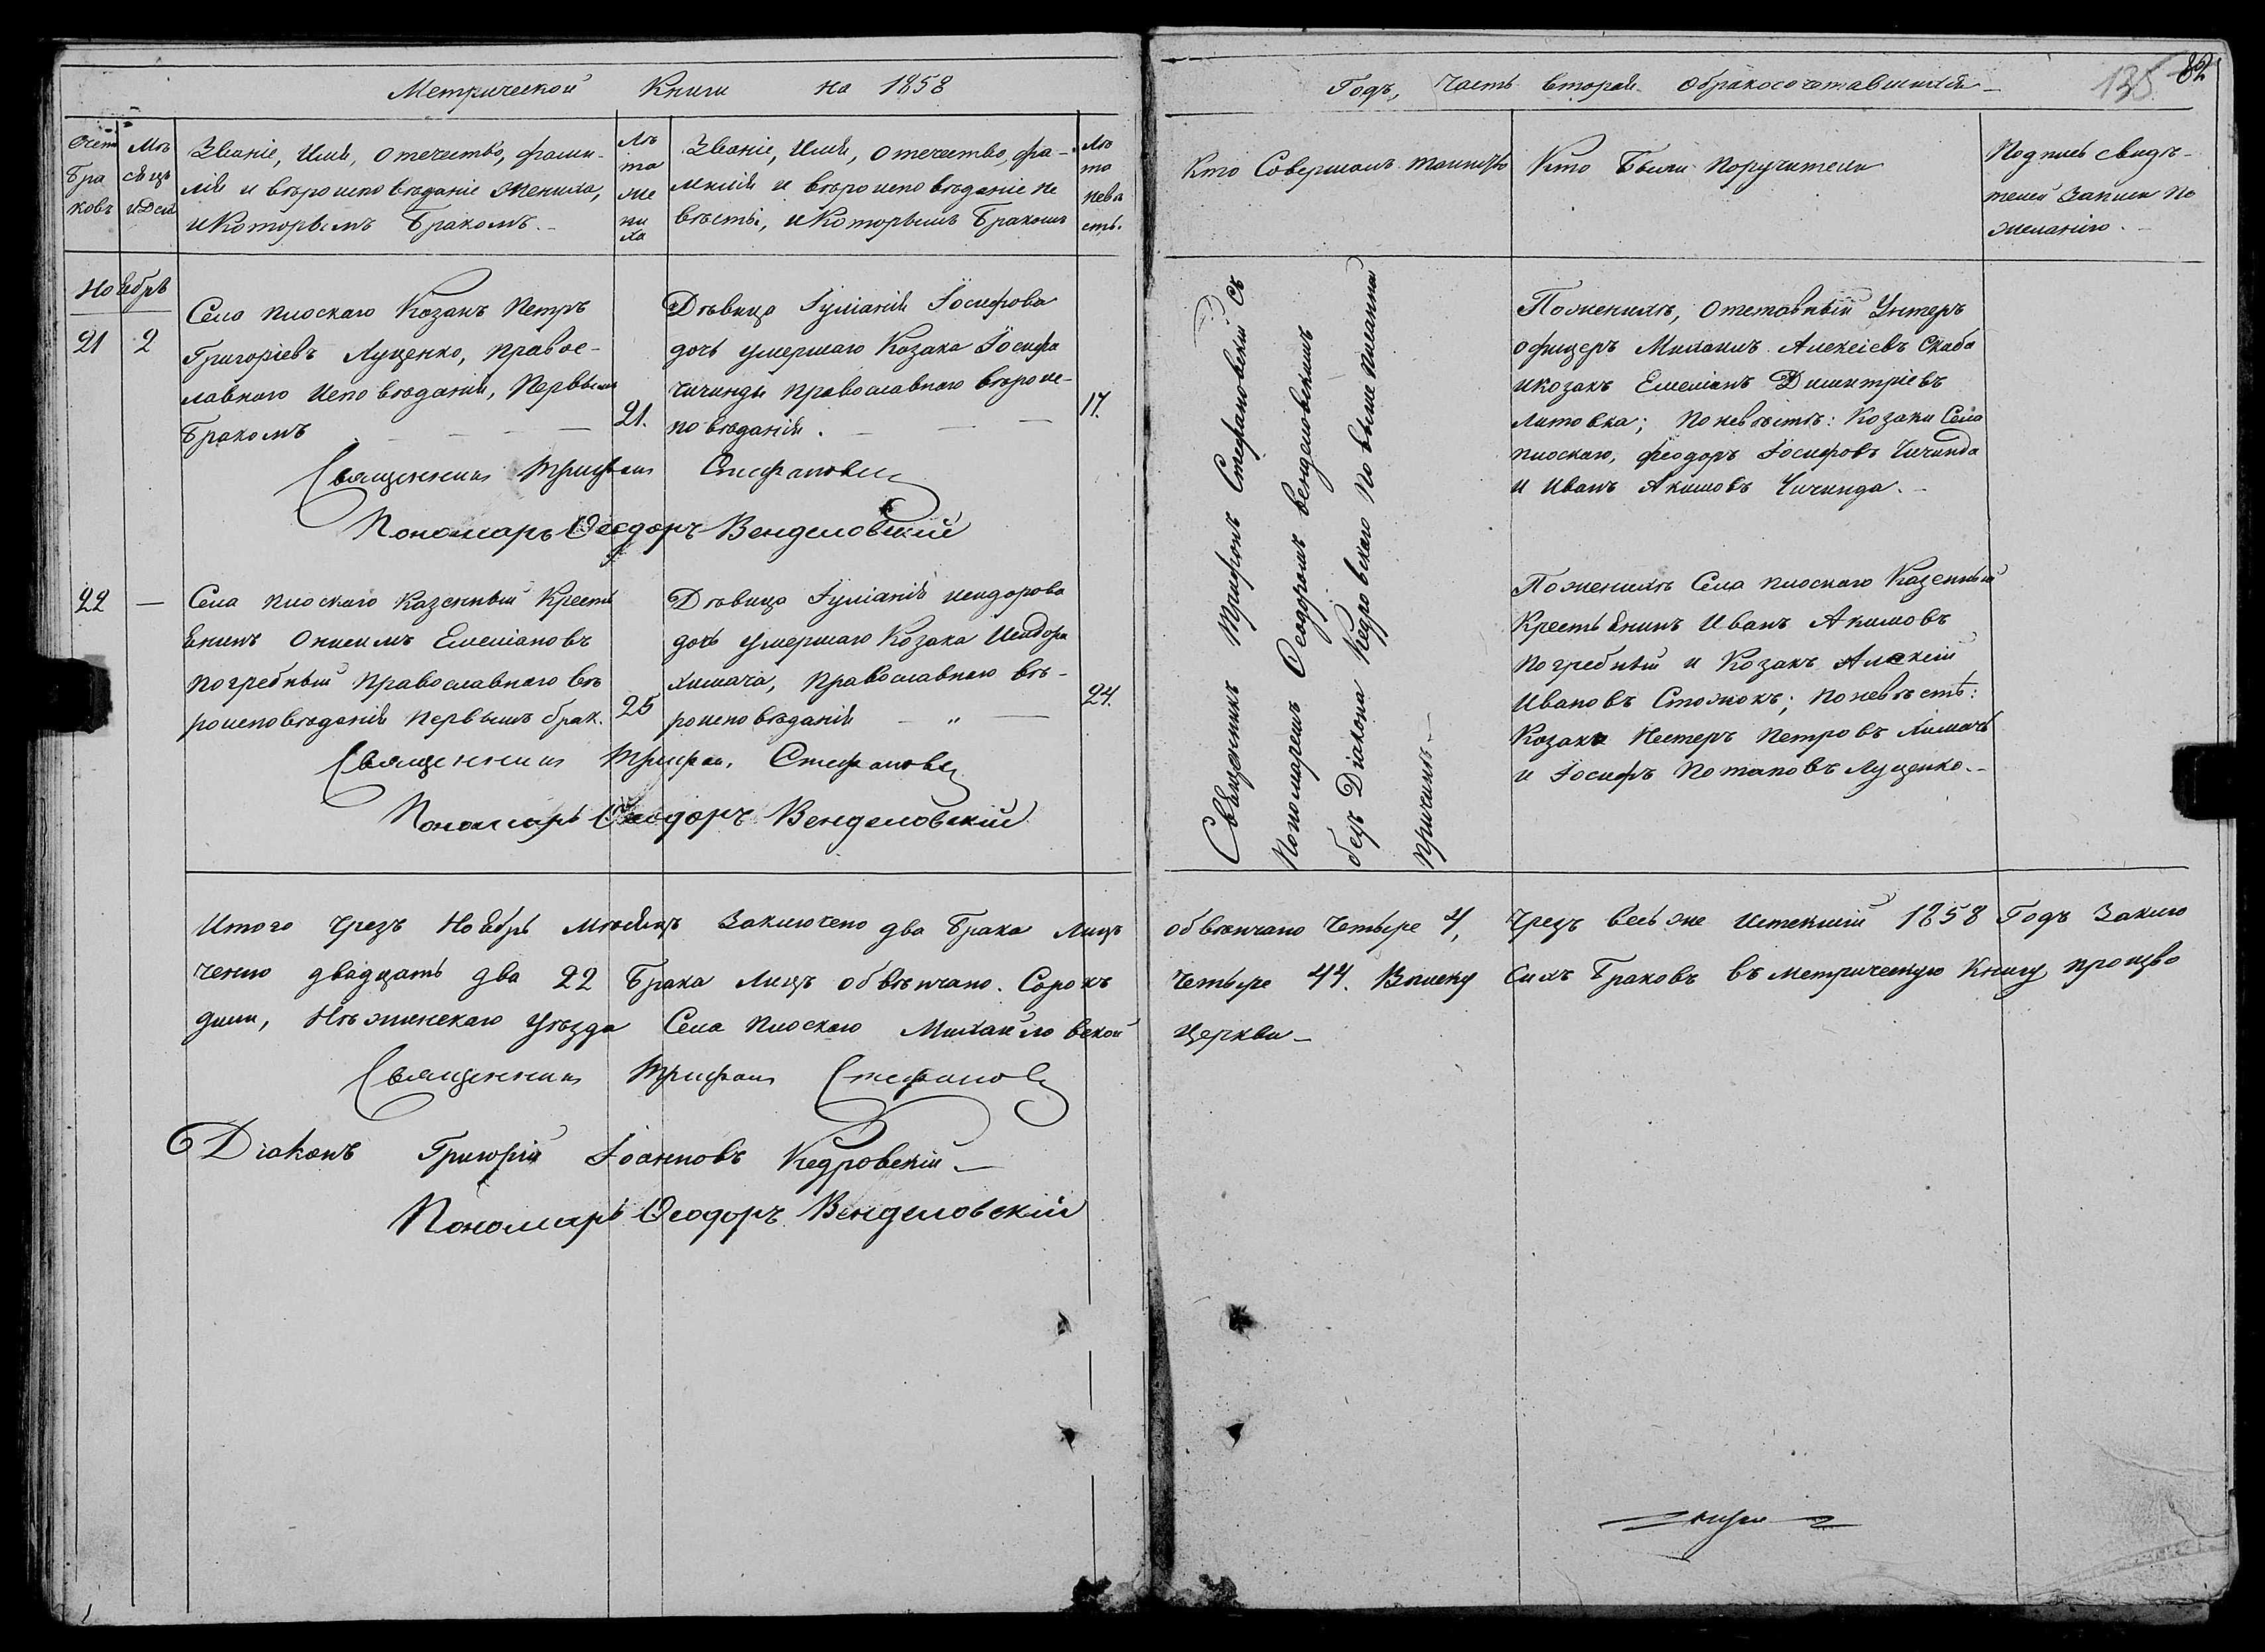 Метрической Книги на 1858
Годъ, Часть вторая о бракосочетавшихся
135 82
Счетъ браковъ
Мѣсяцъ и День
Званіе, Имя, Отечество, фами-
лія и вѣроисповѣданіе Жениха,
и Которымъ Бракомъ.
Лѣта жениха
Званіе, Имя, Отечество, фа-
милія и вѣроисповѣданіе не
вѣсты, и Которымъ Бракомъ
Лѣта невѣсты.
Кто Совершалъ таинство
Кто Были Поручители
Подпись свидѣ-
телей Записи По
желанію.
Ноябрь
21 2
Села Плоскаго Козакъ Петръ
Григоріевъ Луценко, Правос-
лавнаго Исповѣданія, Первымъ
Бракомъ
21.
Дѣвица Іуліанія Іосифова
дочь умершаго Козака Іосифа
Чичинды Православнаго вѣроис-
повѣданія.
17.
Священникъ Трифонъ Стефановскій
Пономарь Ѳеодоръ Венделовскій
22 —
Села Плоскаго Казенный Крестья
янинъ Онисимъ Емеліановъ
Погребный Православнаго вѣ
роисповѣданія Первымъ брак.
25
Дѣвица Іуліанія Исидорова
дочь умершаго Козака Исидора
Лимача, Православнаго вѣ-
роисповѣданія — „ —
24.
Священникъ Трифон. Стефановскій
Пономарь Ѳеодоръ Венделовскій
Священникъ Трифонъ Стефановскій Съ
Пономаремъ Ѳеодоромъ Венделовскимъ
безъ Діакона Кедровскаго По выше писанной
Причинѣ —
По женихѣ, Отставный Унтеръ
офицеръ Михаилъ Алексіевъ Скаба
и козакъ Емеліанъ Димитріевъ
Литовка; По невѣстѣ: Козаки Села
Плоскаго, Феодоръ Іосифовъ Чичинда
и Иванъ Акимовъ Чичинда.
По женихѣ Села Плоскаго Казенный
Крестьянинъ Иванъ Акимовъ
Погребный и Козакъ Алексій
Ивановъ Стожокъ; По невѣстѣ:
Козаки Нестеръ Петровъ Лимачъ
и Іосифъ Потаповъ Луценко.
Итого Чрезъ Ноябрь Мѣсяцъ Заключено два Брака Лицъ обвѣнчано Четыре 4, Чрезъ Весь же истекшій 1858 Годъ Заклю
чено двадцать два 22 Брака Лицъ обвѣнчано. Сорокъ Четыре 44. Вписку Сихъ Браковъ въ Метрическую Книгу произво
дили, Нѣжинскаго Уѣзда Села Плоскаго Михайловской Церкви —
Священникъ Трифонъ Стефановскій
Діаконъ Григорій Іоанновъ Кедровскій. —
Пономарь Ѳеодоръ Венделовскій